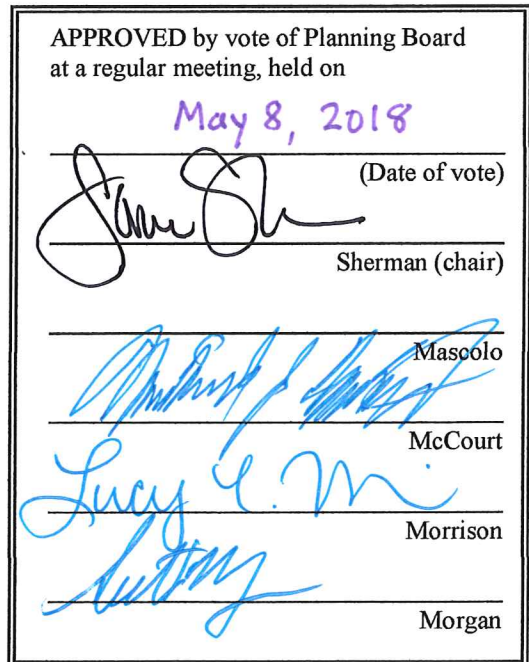 APPROVED by vote of Planning Board
at a regular meeting, held on
May 8, 2018
(Date of vote)
Sherman (chair)
Mascolo
McCourt
Lucy
Morrison
Morgan